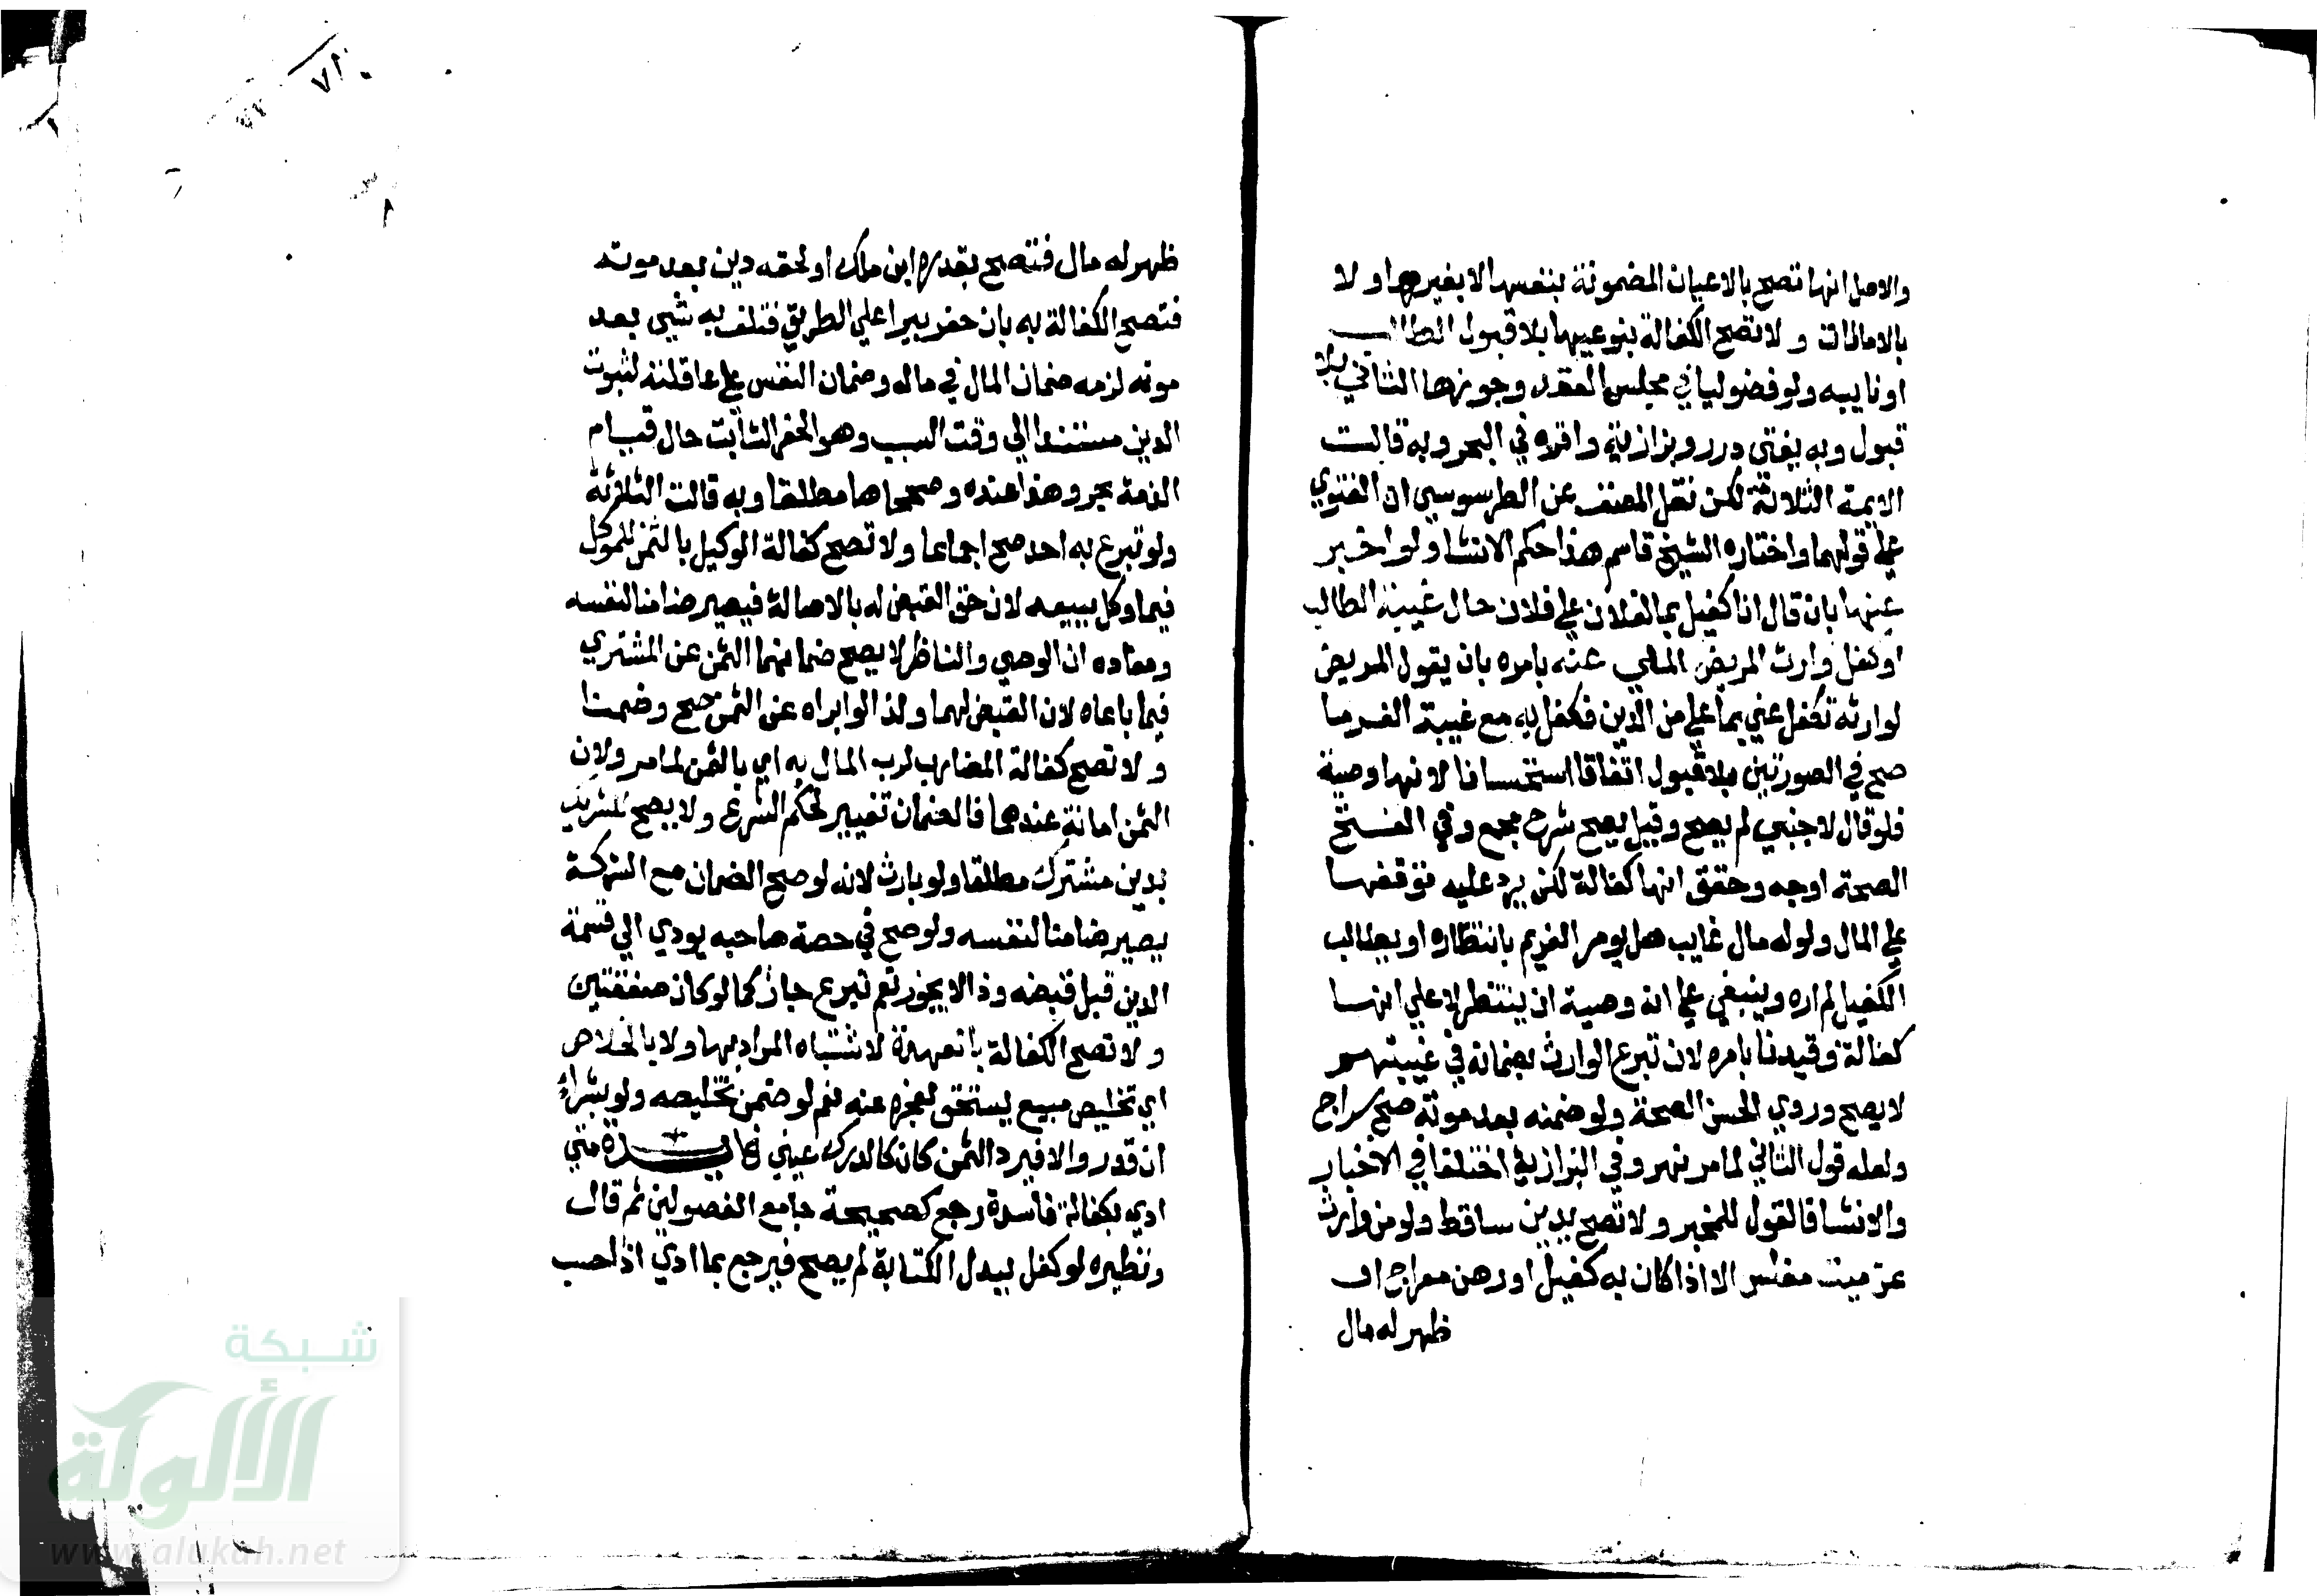 والاصل انها تصح بالاعيان المضمونة بنفسها لا بغيرها ولا
بالامانات ولا تصح الكفالة بنوعيها بلا قبول الطالب
او نايبه ولو فضوليا في مجلس العقد وجوزها الثاني بلا
قبول وبه يفتى درر وبزازية واقره في البحر وبه قالت
الايمة الثلاثة لكن نقل المصنف عن الطرسوسي ان الفتوي
على قولهما واختاره الشيخ قاسم هذا حكم الانشا ولو اخبر
عنها بان قال انا كفيل بما لفلان علي فلان حال غيبة الطالب
او كفل وارث المريض الملي عنه بامره بان يقول المريض
لوارثه تكفل عني بما علي من الدين فكفل به مع غيبة الغرما
صح في الصورتين بلا قبول اتفاقا استحسانا لانها وصية
فلو قال لاجنبي لم يصح وقيل يصح شرح مجمع وفي الفتح
الصحة اوجه وحقق انها كفالة لكن يرد عليه توقفها
علي المال ولو له مال غايب هل يومر الغريم بانتظاره او يطالب
الكفيل لم اره وينبغي على انه وصية ان ينتظر لا علي انها
كفالة وقيدنا بامره لان تبرع الوارث بضمانه في غيبتهم
لا يصح وروي الحسن الصحة ولو ضمنه بعد موته صح سراج
ولعله قول الثاني لما مر نهر وفي البزازية اختلفا في الاخبار
والانشا فالقول للمخبر ولا تصح بدين ساقط ولو من وارث
عن ميت مفلس الا اذا كان به كفيل او رهن معراج او
ظهر له مال
ظهر له مال فتصح بقدره ابن ملك او لحقه دين بعد موته
فتصح الكفالة به بان حفر بيرا علي الطريق فتلف به شي بعد
موته لزمه ضمان المال في ماله وضمان النفس على عاقلته لثبوت
الدين مستندا الي وقت السبب وهو الحفر الثابت حال قيام
الذمة بحر وهذا عنده وصححاها مطلقا وبه قالت الثلاثة
ولو تبرع به احد صح اجماعا ولا تصح كفالة الوكيل بالثمن للموكل
فيما وكل ببيعه لان حق القبض له بالاصالة فيصير ضامنا لنفسه
ومفاده ان الوصي والناظر لا يصح ضمانهما الثمن عن المشتري
فيما باعاه لان القبض لهما ولذا لو ابراه عن الثمن صح وضمنا
ولا تصح كفالة المضارب لرب المال به اي بالثمن لما مر ولان
الثمن امانة عندهما فالضمان تغيير لحكم الشرع ولا يصح للشريك
بدين مشترك مطلقا ولو بارث لانه لو صح الضمان مع الشركة
يصير ضامنا لنفسه ولو صح في حصة صاحبه يودي الي قسمة
الدين قبل قبضه وذا لا يجوز نعم لو تبرع جاز كما لو كان صفقتين
ولا تصح الكفالة بالعهدة لاشتباه المراد بها ولا بالخلاص
اي تخليص مبيع يستحق لعجزه عنه نعم لو ضمن تخليصه ولو بشراء
ان قدر والا فيرد الثمن كان كالدرك عيني فايدة متي
ادي بكفالة فاسدة رجع كصحيحة جامع الفصولين ثم قال
ونظيره لو كفل ببدل الكتابة لم يصح فيرجع بما ادي اذا حسب
شبكة
الألوكة
www.alukah.net